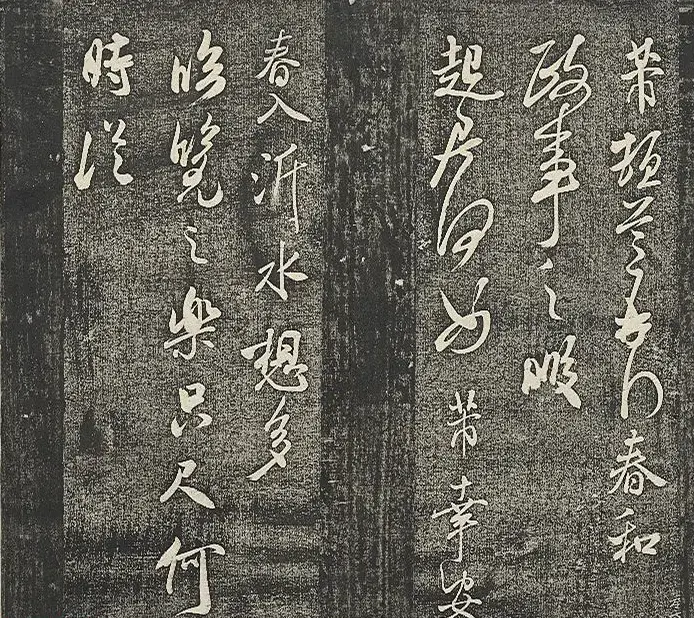 芾頓首 春和
政事之暇
起居何如 芾幸安
春入沂水想多
臨覽之樂只尺何
時從